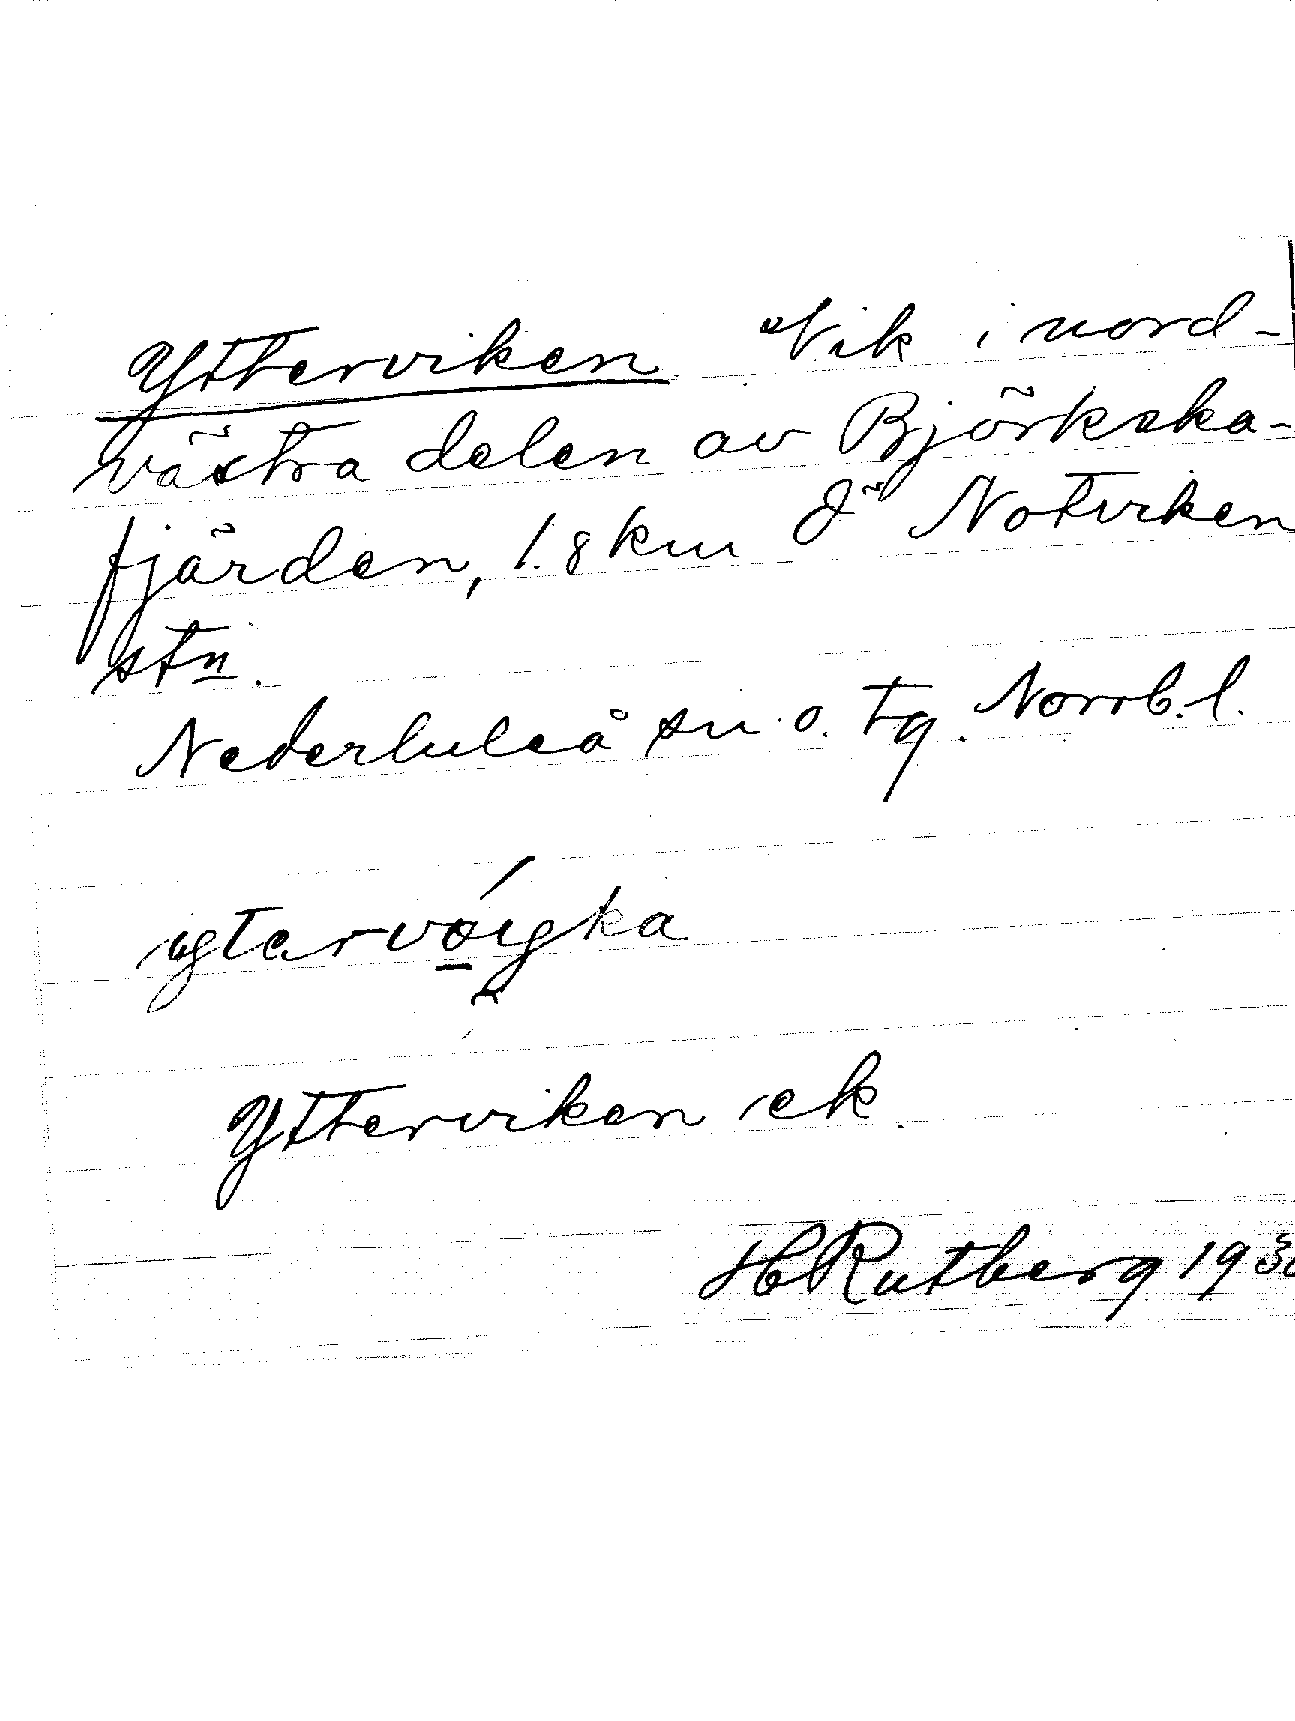 Ytterviken Vik i nord-
västra delen av Björkska-
fjärden, 1.8 km Ö Notviken
stn.
Nederluleå sn o. tg. Norrb. l.
Ytterviken ek
H Rutberg 193